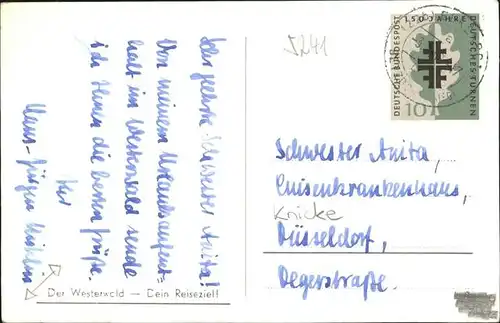 5241
150 JAHRE
DEUTSCHES TURNEN
DEUTSCHE BUNDESPOST
10
Sehr geehrte Schwester Anita!
Von meinem Urlaubsaufent-
halt im Westerwald sende
ich Ihnen die besten Grüße.
Ihr
Hans-Jürgen
Der Westerwald — Dein Reiseziel!
Schwester Anita,
Luisenkrankenhaus,
Knicke
Düsseldorf,
Degerstraße.